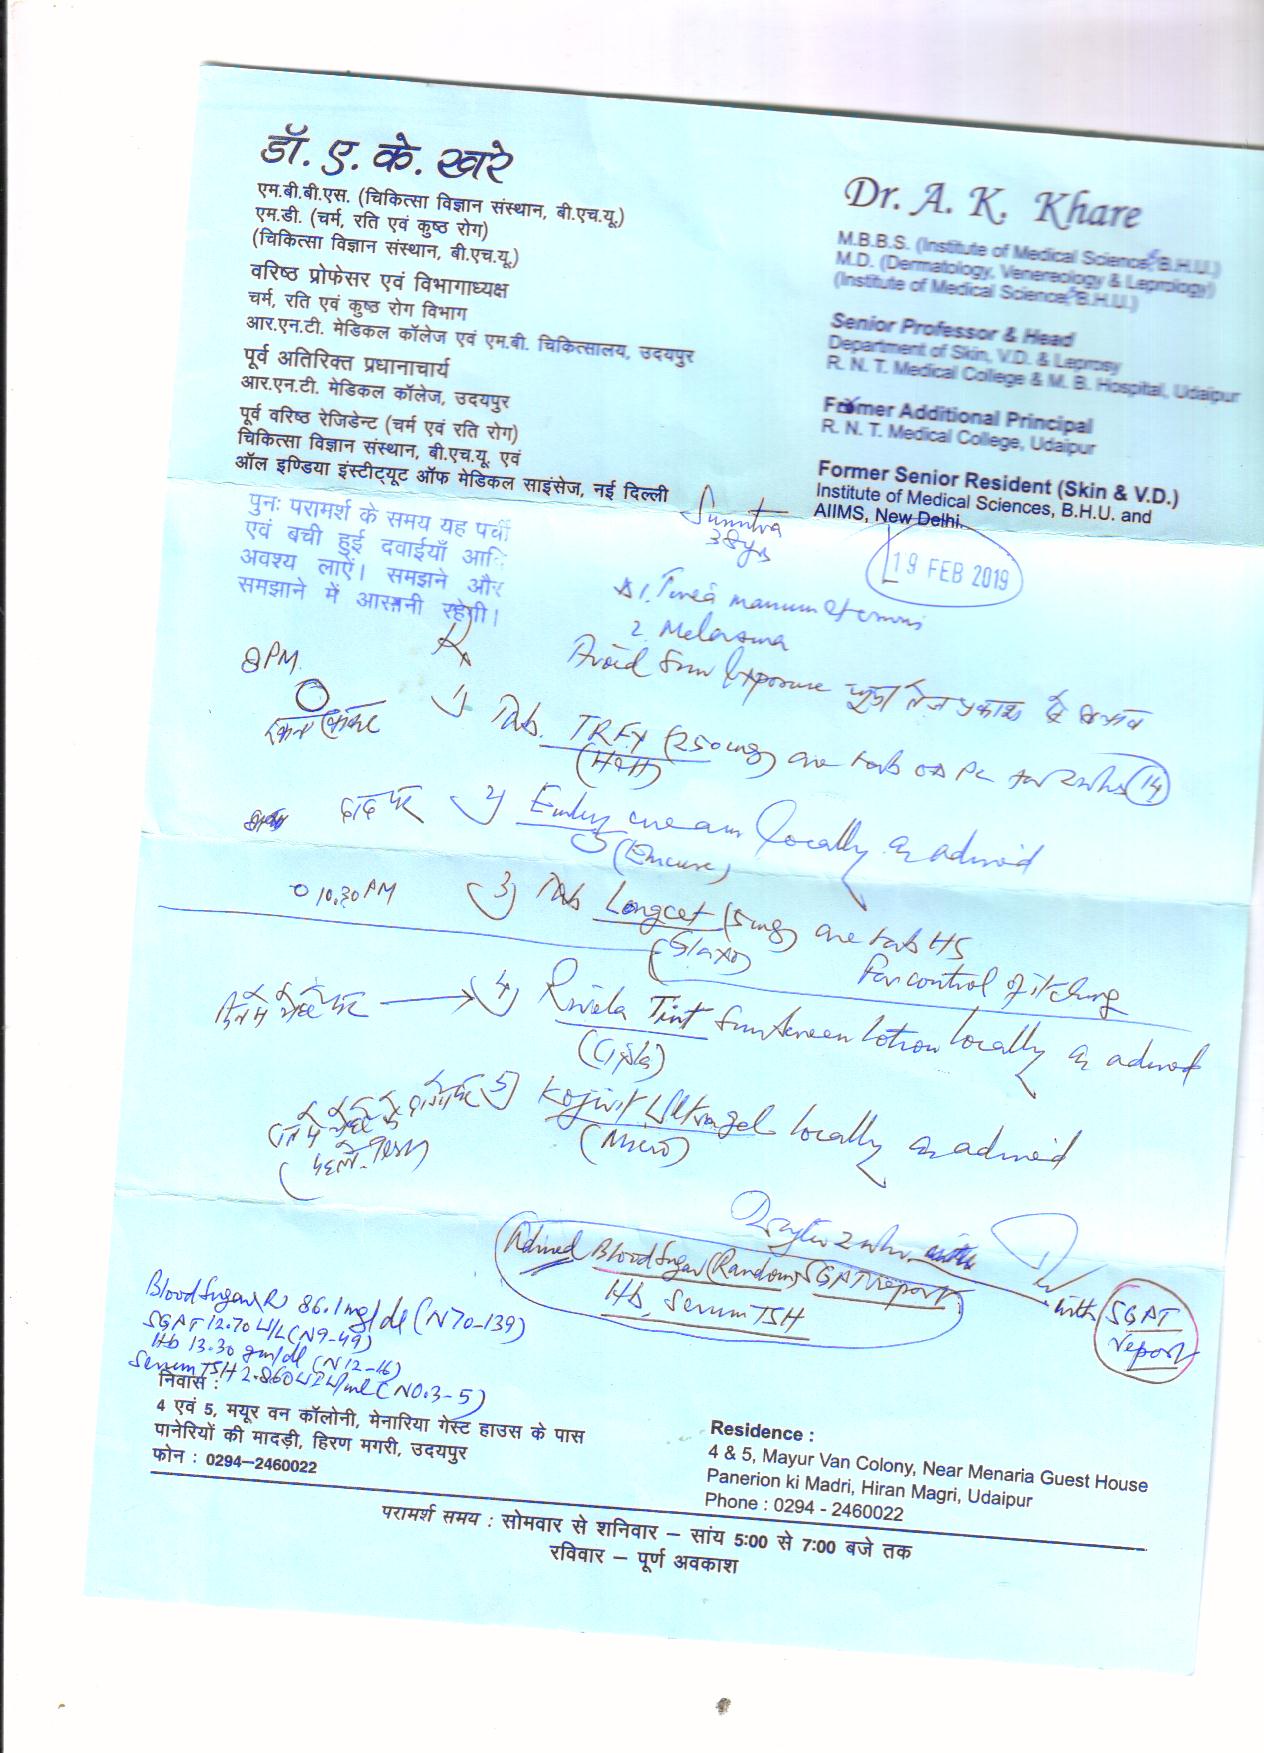 डॉ. ए. के. खरे
एम.बी.बी.एस. (चिकित्सा विज्ञान संस्थान, बी.एच.यू.)
एम.डी. (चर्म, रति एवं कुष्ठ रोग)
(चिकित्सा विज्ञान संस्थान, बी.एच.यू.)
वरिष्ठ प्रोफेसर एवं विभागाध्यक्ष
चर्म, रति एवं कुष्ठ रोग विभाग
आर.एन.टी. मेडिकल कॉलेज एवं एम.बी. चिकित्सालय, उदयपुर
पूर्व अतिरिक्त प्रधानाचार्य
आर.एन.टी. मेडिकल कॉलेज, उदयपुर
पूर्व वरिष्ठ रेजिडेन्ट (चर्म एवं रति रोग)
चिकित्सा विज्ञान संस्थान, बी.एच.यू. एवं
ऑल इण्डिया इंस्टीट्यूट ऑफ मेडिकल साइंसेज, नई दिल्ली
Dr. A. K. Khare
M.B.B.S. (Institute of Medical Science, B.H.U.)
M.D. (Dermatology, Venereology & Leprology)
(Institute of Medical Science, B.H.U.)
Senior Professor & Head
Department of Skin, V.D. & Leprosy
R. N. T. Medical College & M. B. Hospital, Udaipur
Former Additional Principal
R. N. T. Medical College, Udaipur
Former Senior Resident (Skin & V.D.)
Institute of Medical Sciences, B.H.U. and
AIIMS, New Delhi.
पुनः परामर्श के समय यह पर्ची
एवं बची हुई दवाईयाँ आदि
अवश्य लाऐं। समझने और
समझाने में आसानी रहेगी।
38 yrs
19 FEB 2019
1. Tinea manuum
2. Melasma
Avoid Sun Exposure
8 PM
Rx
1) Tab. (250mg) one tab OD PC for 2 wks (14)
(H&H)
दाद पर 2) cream locally as advised
(Emcure)
10.30 PM 3) Tab Longcet (5mg) one tab HS
(Glaxo) For control of itching
4) Rivela Tint Sunscreen Lotion locally as advised
(Cipla)
5) Kojivit Ultra gel locally as advised
(Micro)
after 2 wks
with SGPT report
Advised Blood Sugar (Random) SGPT report
Hb, Serum TSH
Blood Sugar R 86.1 mg/dl (N 70-139)
SGPT 12.70 U/L (N 9-49)
Hb 13.30 gm/dl (N 12-16)
Serum TSH 2.860 uIU/ml (N 0.3-5)
निवास :
4 एवं 5, मयूर वन कॉलोनी, मेनारिया गेस्ट हाउस के पास
पानेरियों की मादड़ी, हिरण मगरी, उदयपुर
फोन : 0294-2460022
Residence :
4 & 5, Mayur Van Colony, Near Menaria Guest House
Panerion ki Madri, Hiran Magri, Udaipur
Phone : 0294 - 2460022
परामर्श समय : सोमवार से शनिवार – सांय 5:00 से 7:00 बजे तक
रविवार – पूर्ण अवकाश